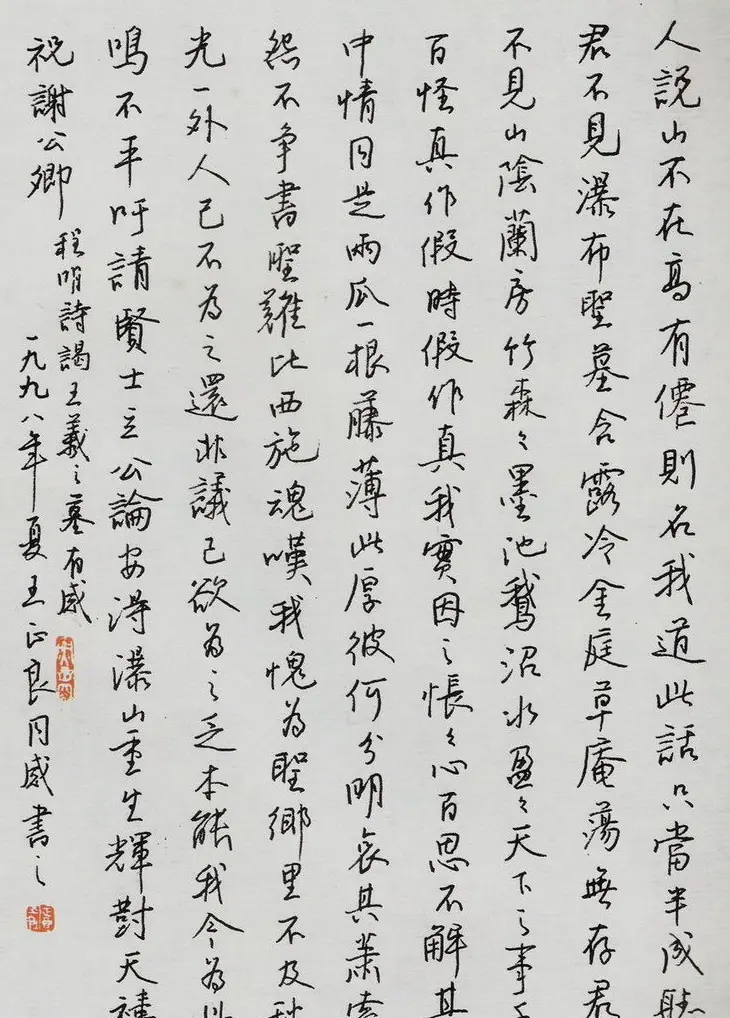 人説山不在高有僊則名我道此話只當半成聽
君不見瀑布聖墓含露冷金庭草庵蕩無存君
不見山陰蘭房竹森々墨池鵝沼水盈々天下之事
百怪真作假時假作真我實因之悵々心百思不解其
中情同是兩瓜一根藤薄此厚彼何分明哀其蕭索
怨不争書聖難比西施魂嘆我愧為聖鄉里不及
光一外人已不為之還非議已欲為之乏本能我今為此
鳴不平吁請賢士立公論安得瀑山重生輝對天禱
祝謝公卿 程哨詩謁王羲之墓有感
一九九八年夏王正良同感書之